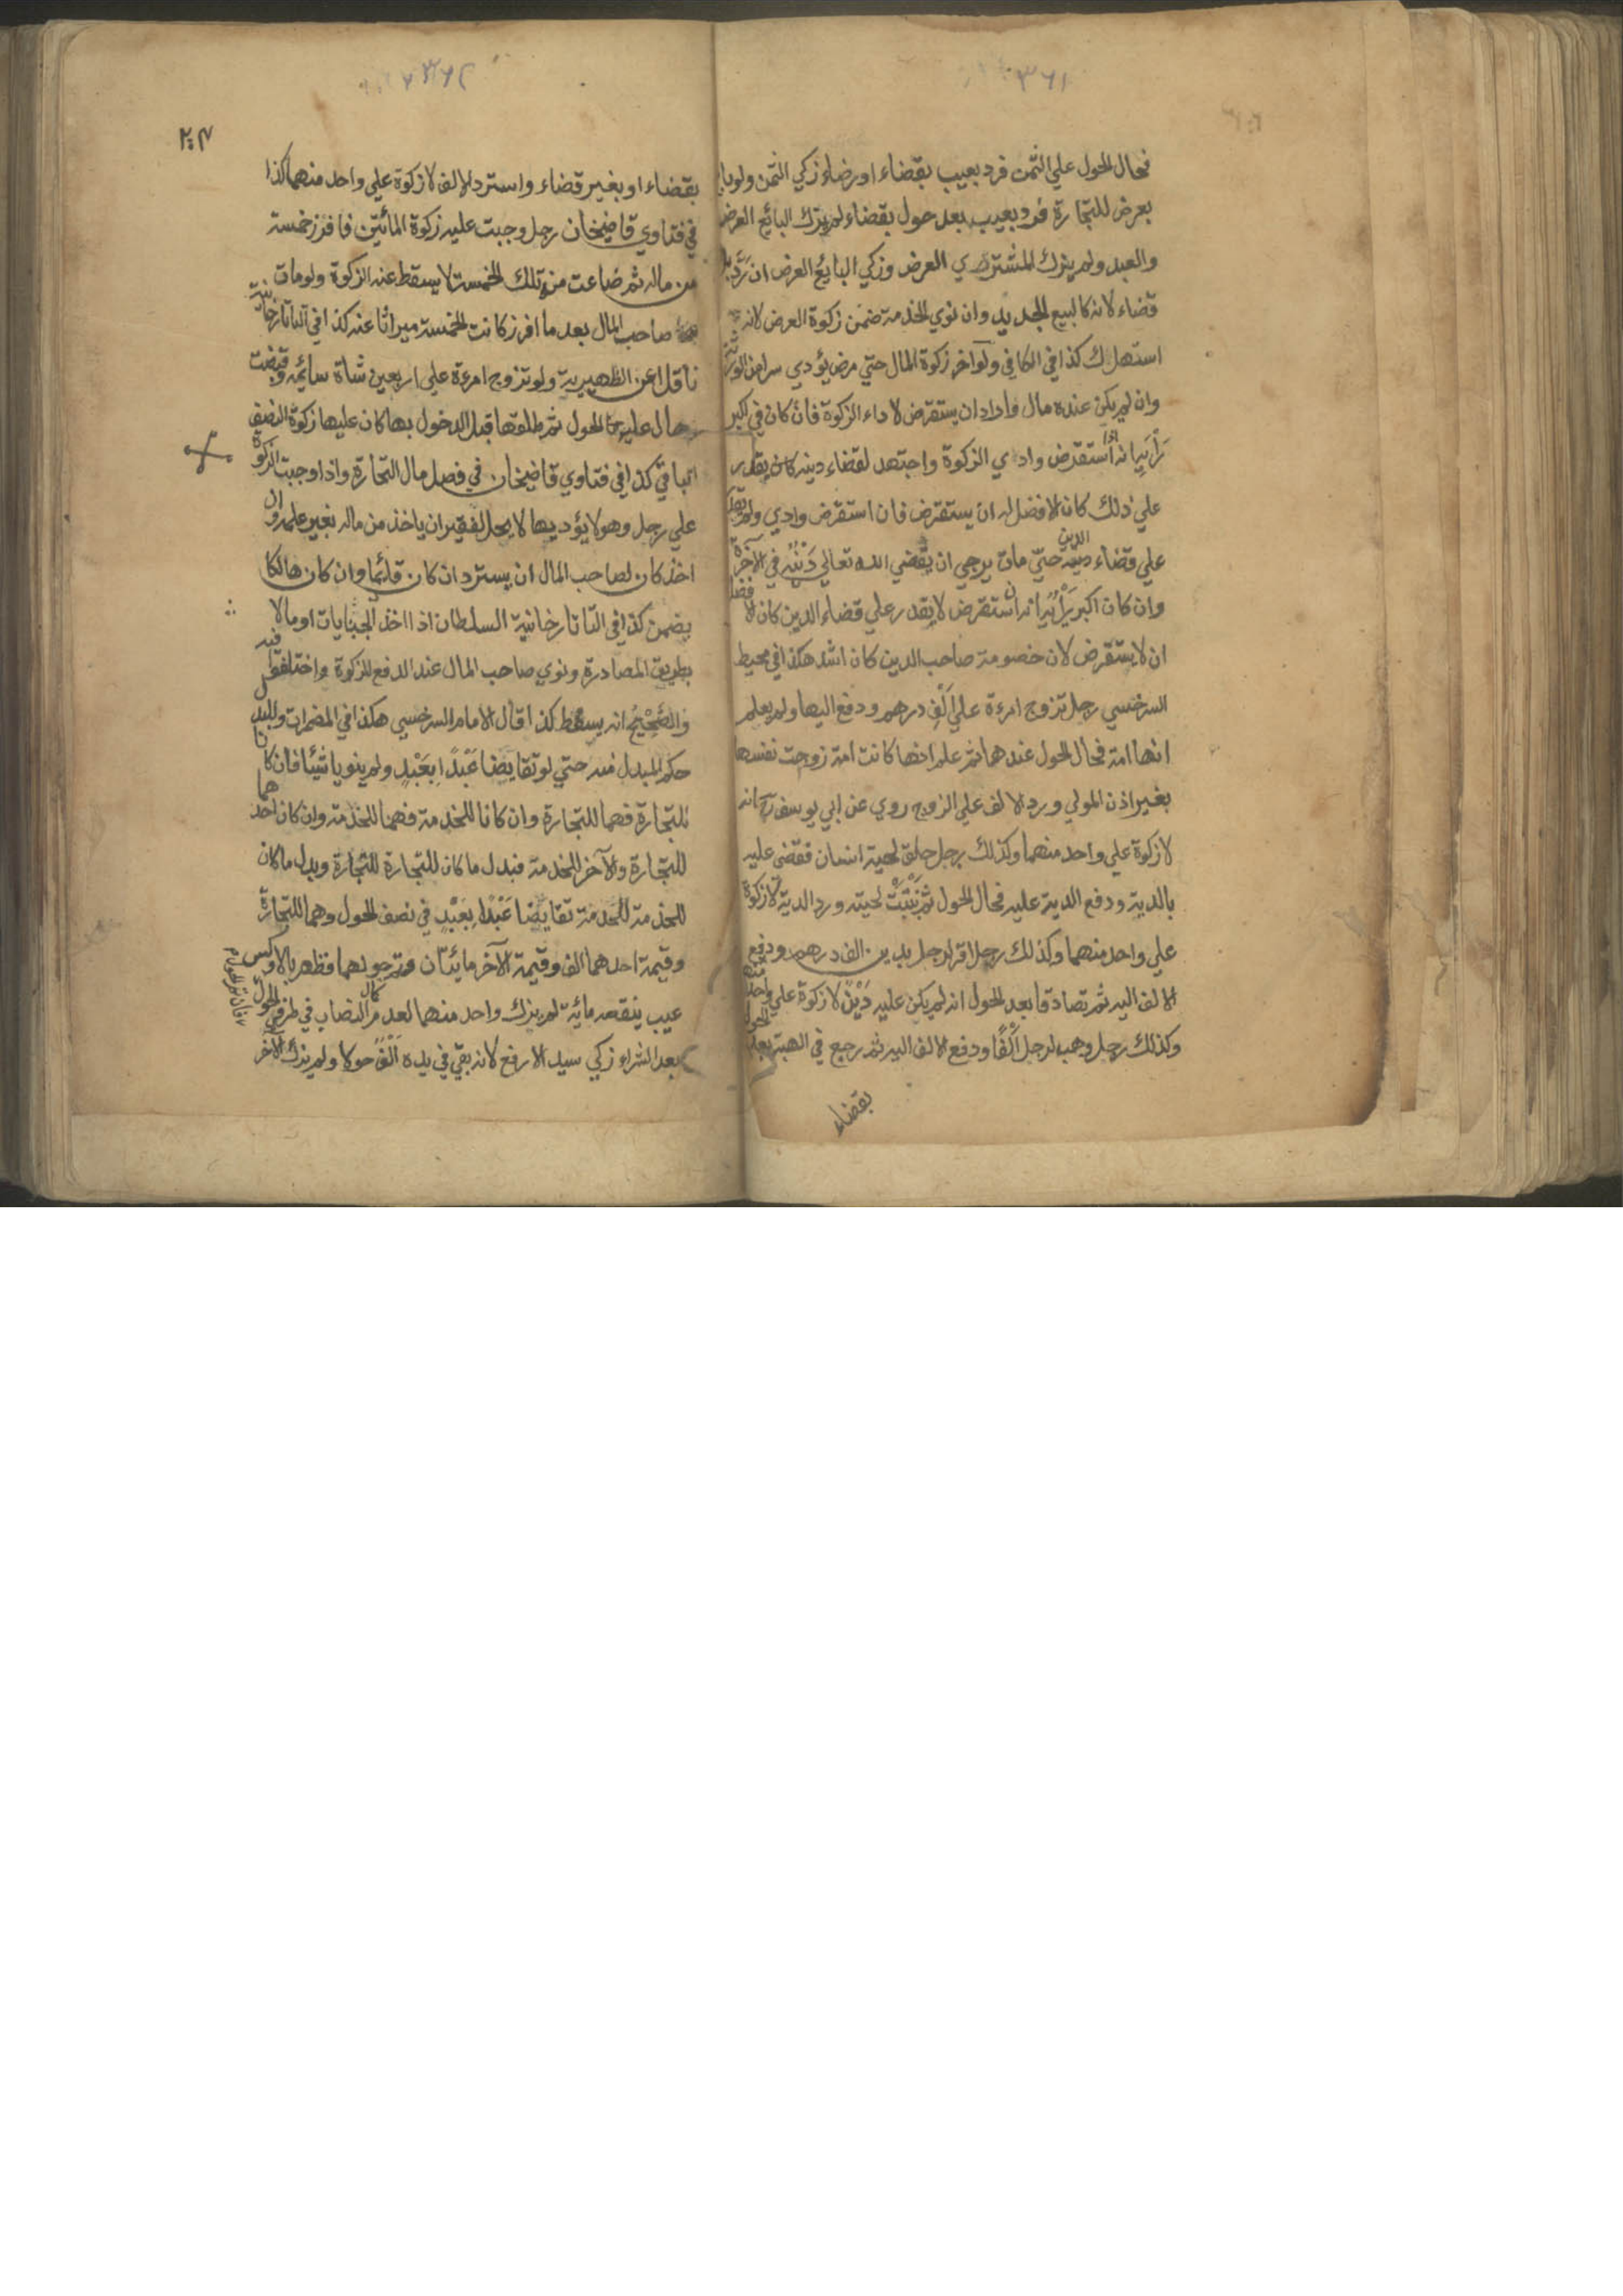 ٣٦١
فحال الحول علي الثمن فرد بعيب بقضاء او رضاء زكي الثمن ولو باع
بعرض للتجارة فرد بعيب بعد حول بقضاء لم يزك البائع العرض
والعبد ولم يزك المشتري العرض وزكي البايع العرض ان رد بلا
قضاء لانه كالبيع الجديد وان نوي الخدمة ضمن زكوة العرض لانه
استهلك كذا في الكافي ولو اخر زكوة المال حتي مرض يؤدي سرا من الورثة
وان لم يكن عنده مال فاراد ان يستقرض لاداء الزكوة فان كان في اكبر
رأيه انه اذا استقرض وادي الزكوة واجتهد لقضاء دينه كان يقدر
علي ذلك كان الافضل له ان يستقرض فان استقرض وادي ولم يقدر
علي قضاء الدين حتي مات يرجي ان يقضي الله تعالي دينه في الآخرة
وان كان اكبر رأيه انه ان استقرض لا يقدر علي قضاء الدين كان الافضل
ان لا يستقرض لان خصومة صاحب الدين كان اشد هكذا في محيط
السرخسي رجل تزوج امرءة علي الف درهم ودفع اليها ولم يعلم
انها امة فحال الحول عندهما ثم علم انها كانت امة زوجت نفسها
بغير اذن المولي ورد الالف علي الزوج روي عن ابي يوسف رح انه
لا زكوة علي واحد منهما وكذلك رجل حلق لحية انسان فقضي عليه
بالدية ودفع الدية عليه فحال الحول ثم نبتت لحيته ورد الدية لا زكوة
علي واحد منهما وكذلك رجل اقر لرجل بدين الف درهم ودفع
الالف اليه ثم تصادقا بعد الحول انه لم يكن عليه دين لا زكوة علي واحد منهما
وكذلك رجل وهب لرجل الفا ودفع الالف اليه ثم رجع في الهبة بعد الحول
بقضاء
٣٦٢
بقضاء او بغير قضاء واسترد الالف لا زكوة علي واحد منهما كذا
في فتاوي قاضيخان رجل وجبت عليه زكوة المائتين فافرز خمسة
من ماله ثم ضاعت منه تلك الخمسة لا يسقط عنه الزكوة ولو مات
صاحب المال بعد ما افرز كانت الخمسة ميراثا عنه كذا في التاتارخانية
ناقلا عن الظهيرية ولو تزوج امرءة علي اربعين شاة سائمة وقبضت
وحال عليها الحول ثم طلقها قبل الدخول بها كان عليها زكوة النصف
الباقي كذا في فتاوي قاضيخان في فصل مال التجارة واذا وجبت الزكوة
علي رجل وهو لا يؤديها لا يحل لفقير ان ياخذ من ماله بغير علمه وان
اخذ كان لصاحب المال ان يسترد ان كان قائما وان كان هالكا
يضمن كذا في التاتارخانية السلطان اذا اخذ الجبايات او مالا
بطريق المصادرة ونوي صاحب المال عند الدفع الزكوة واختلفوا فيه
والصحيح انه يسقط كذا قال الامام السرخسي هكذا في المضمرات وللبدل
حكم المبدل منه حتي لو تقايضا عبدا بعبد ولم ينويا شيئا فان كانا
للتجارة فهما للتجارة وان كانا للخدمة فهما للخدمة وان كان احدهما
للتجارة والآخر للخدمة فبدل ما كان للتجارة للتجارة وبدل ما كان
للخدمة للخدمة تقايضا عبدا بعبد في نصف الحول وهما للتجارة
وقيمة احدهما الف وقيمة الآخر مائتان فظهر بالاوكس
عيب ينقصه مائة لم يزك واحد منهما لعدم كمال النصاب في طرفي الحول
بعد الشراء زكي سيد الارفع لانه بقي في يده الف حولا ولم يزك الآخر